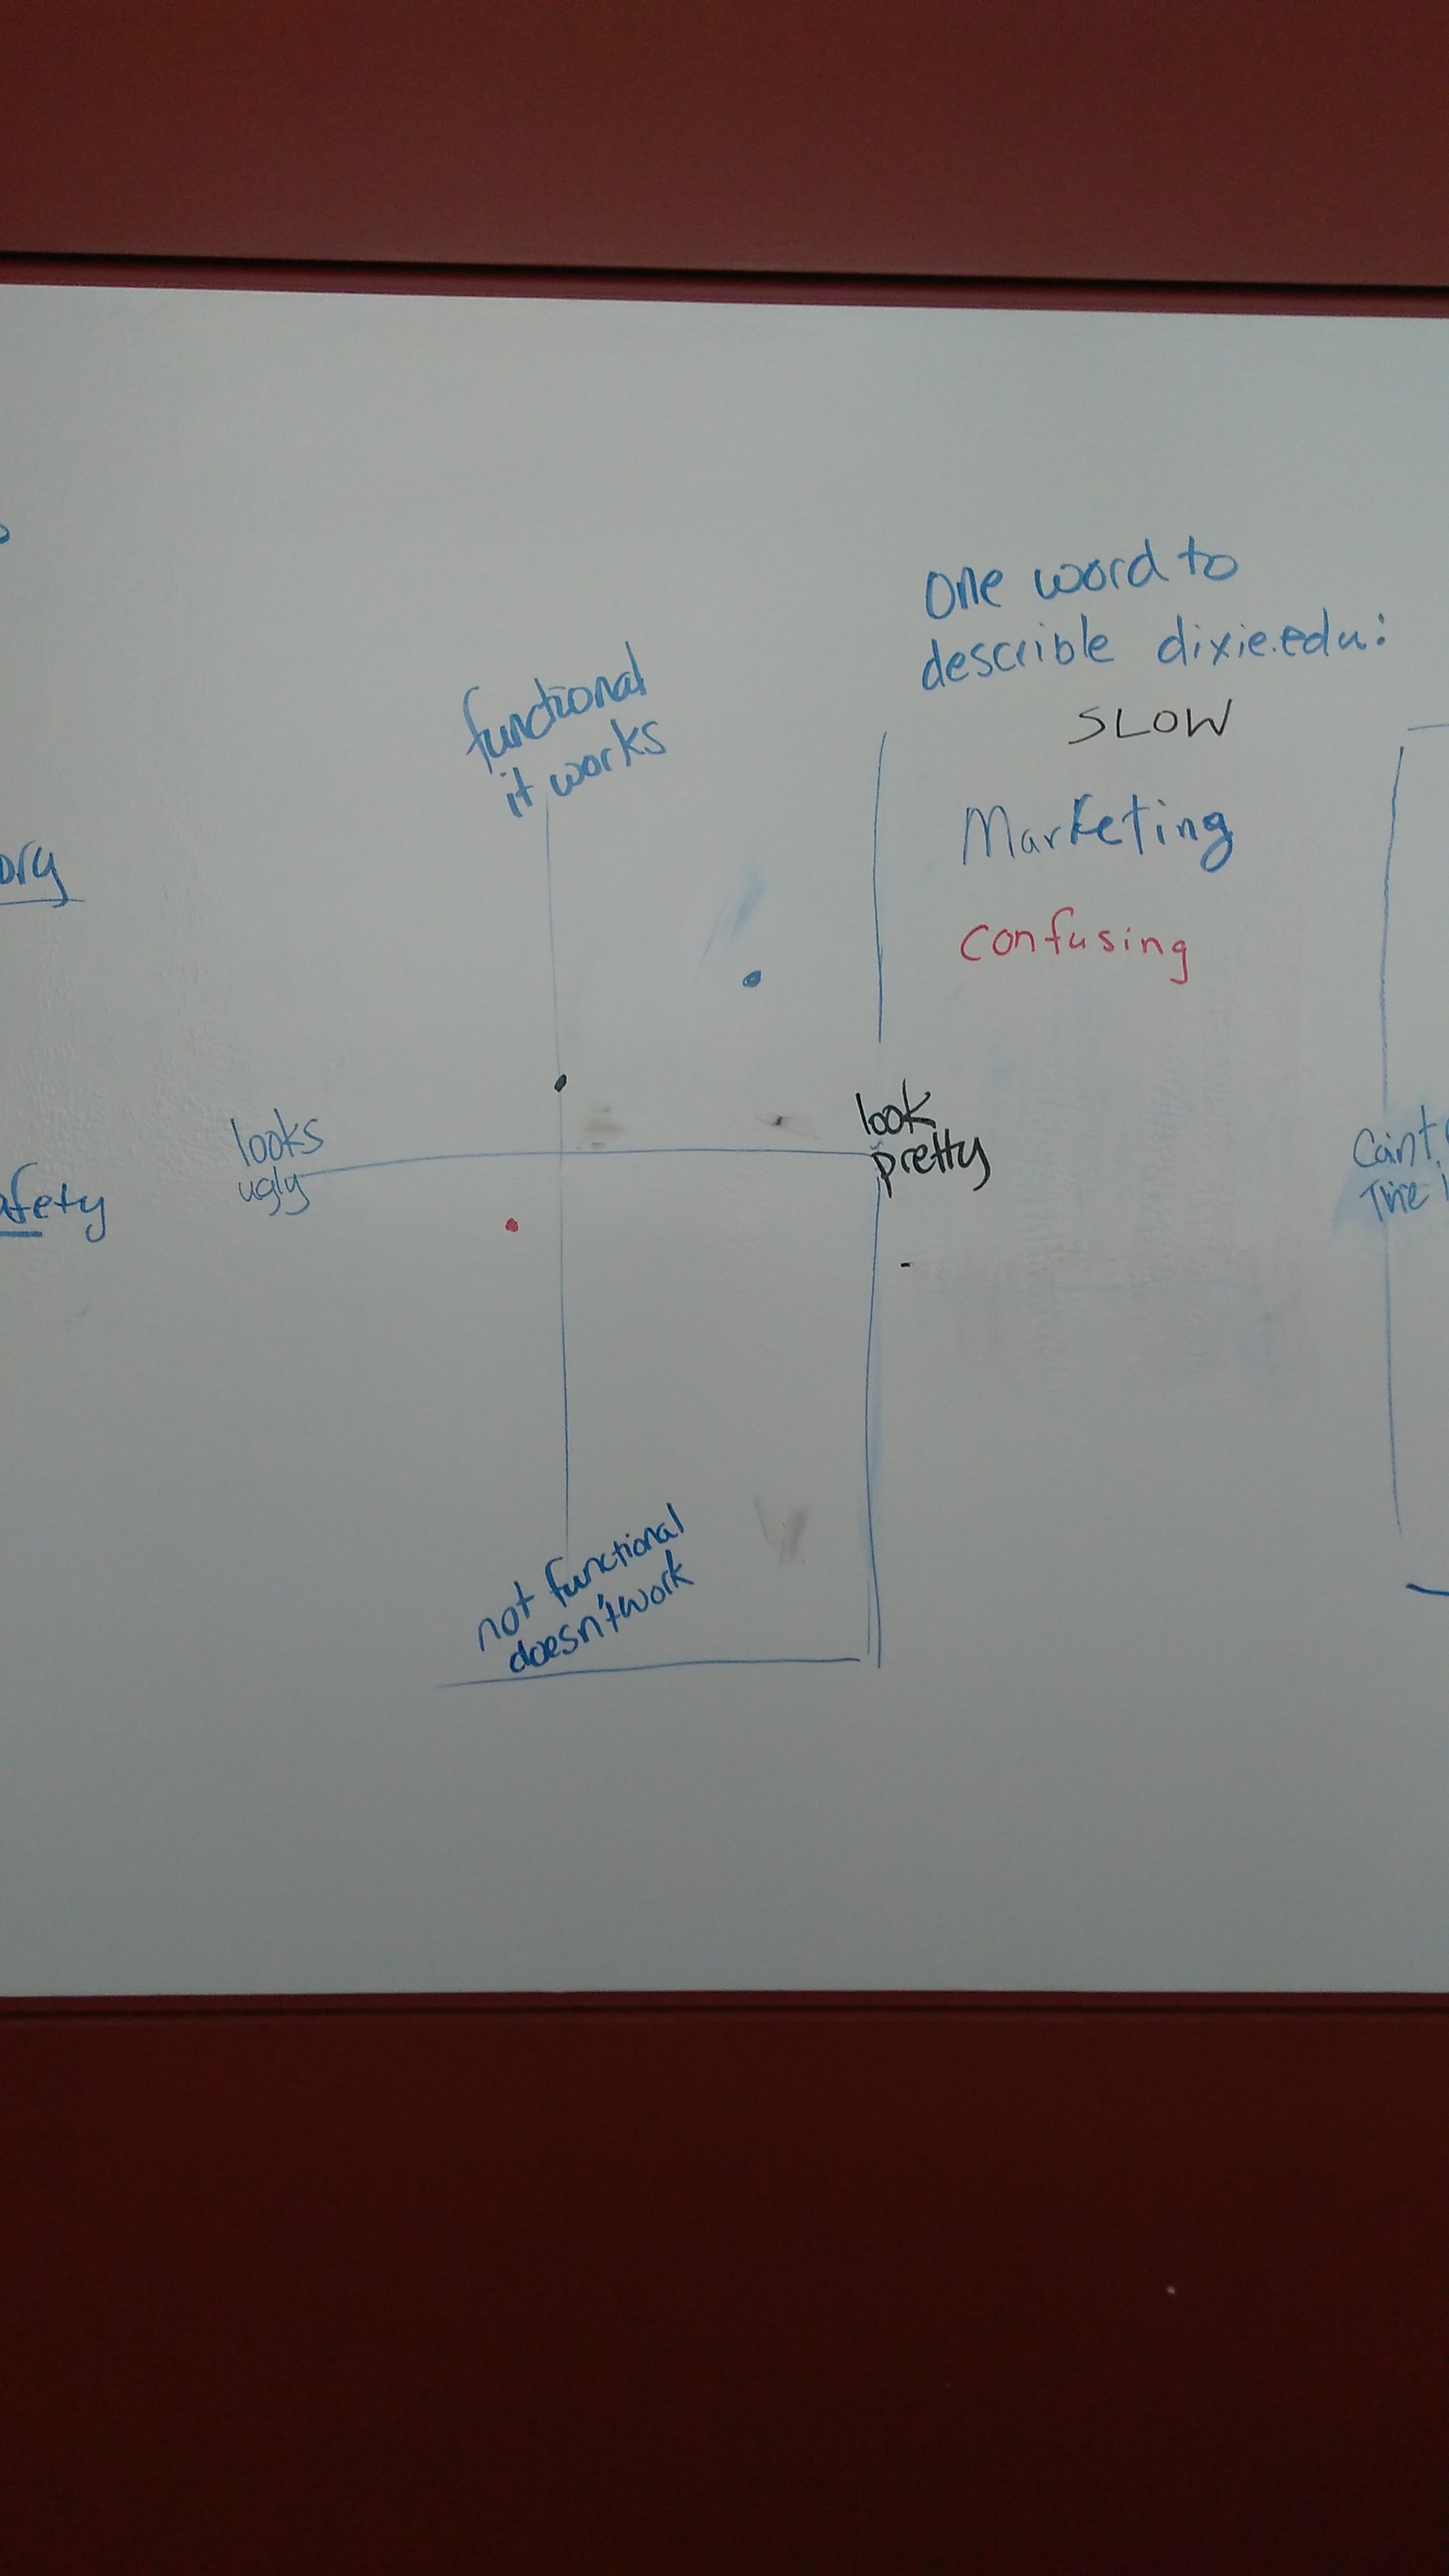 functional
it works
looks
ugly
look
pretty
not functional
doesn't work
one word to
describle dixie.edu:
SLOW
Marketing
confusing